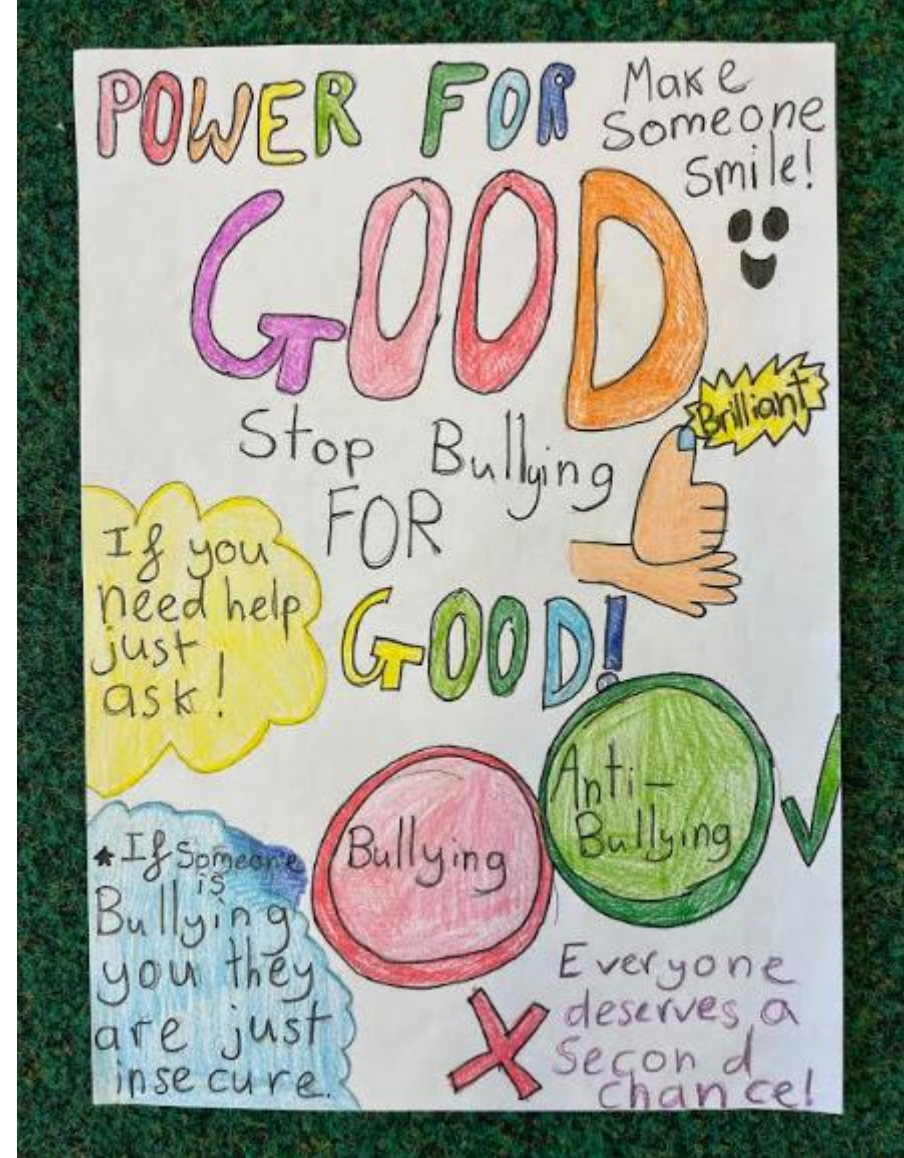 POWER FOR
GOOD
Make
Someone
Smile!
Brilliant
Stop Bullying
FOR
GOOD!
If you
need help
just
ask!
Anti-
Bullying
Bullying
★If Someone
is
Bullying
you they
are just
insecure.
Everyone
deserves a
Second
chance!